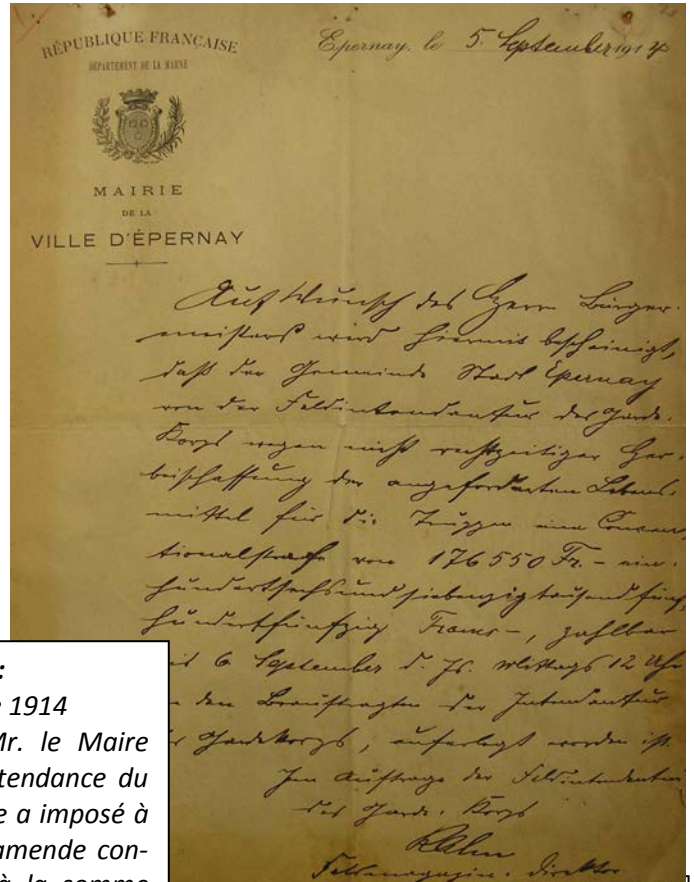 RÉPUBLIQUE FRANÇAISE
DÉPARTEMENT DE LA MARNE
MAIRIE
DE LA
VILLE D'ÉPERNAY
Epernay, le 5. September 1914
Auf Wunsch des Herrn Bürger-
meisters wird hiermit bescheinigt,
daß der Gemeinde Stadt Epernay
von der Feldintendantur des Garde-
Korps wegen nicht rechtzeitiger Her-
beischaffung der angeforderten Lebens-
mittel für die Truppen eine Conven-
tionalstrafe von 176550 Fr. - ein-
hundertsechsundsiebenzigtausendfünf-
hundertfünfzig Francs -, zahlbar
6. September d. Js. Mittags 12 Uhr
den Beauftragten der Intendantur
Gardekorps, auferlegt worden ist.
Im Auftrage der Feldintendantur
des Garde-Korps
Feldmagazin-Direktor
:
1914
Mr. le Maire
tendance du
e a imposé à
amende con-
à la somme